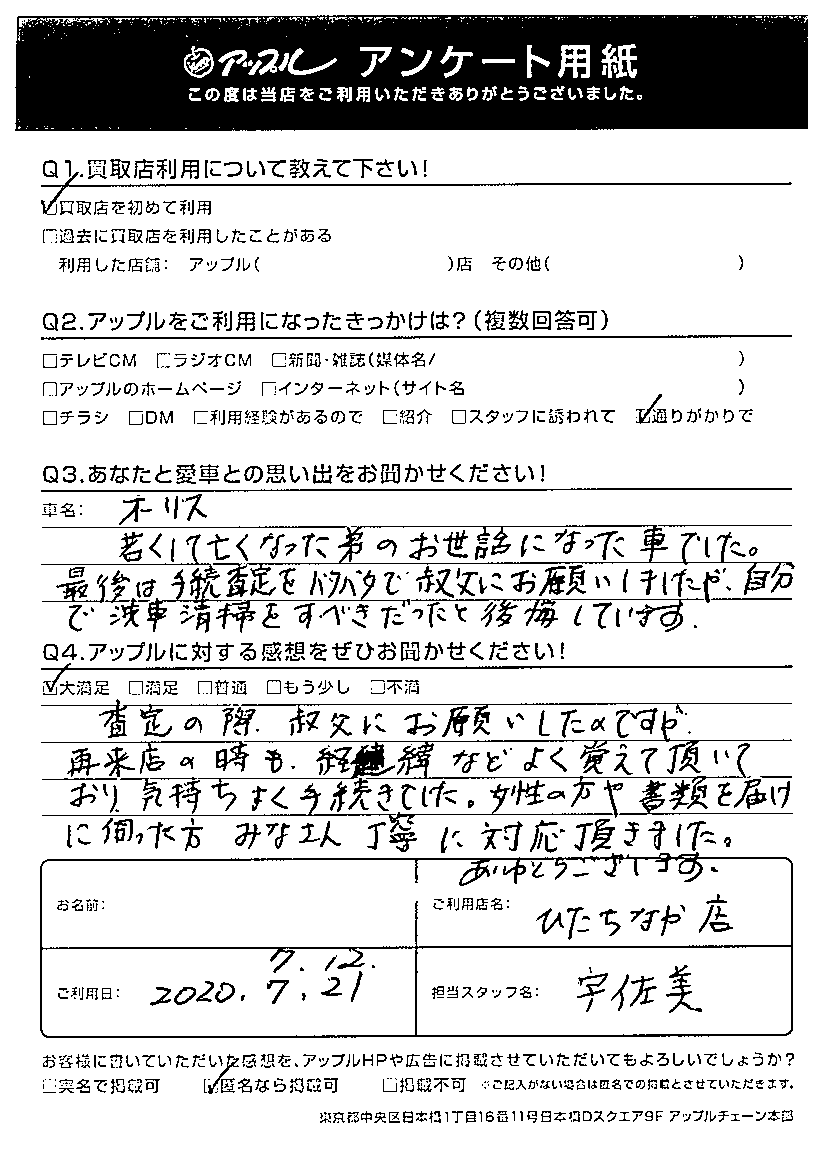 アップル アンケート用紙
この度は当店をご利用いただきありがとうございました。
Q1.買取店利用について教えて下さい!
☑買取店を初めて利用
□過去に買取店を利用したことがある
利用した店舗: アップル( )店 その他( )
Q2.アップルをご利用になったきっかけは?(複数回答可)
□テレビCM □ラジオCM □新聞・雑誌(媒体名/ )
□アップルのホームページ □インターネット(サイト名 )
□チラシ □DM □利用経験があるので □紹介 □スタッフに誘われて ☑通りがかりで
Q3.あなたと愛車との思い出をお聞かせください!
車名: オーリス
若くして亡くなった弟のお世話になった車でした。
最後は手続査定をバタバタで叔父にお願いしましたが、自分
で洗車清掃をすべきだったと後悔しています。
Q4.アップルに対する感想をぜひお聞かせください!
☑大満足 □満足 □普通 □もう少し □不満
査定の際、叔父にお願いしたのですが、
再来店の時も、経緯などよく覚えて頂いて
おり、気持ちよく手続きでした。女性の方や書類を届け
に伺った方 みなさん丁寧に対応頂きました。
ありがとうございます。
お名前:
ご利用店名: ひたちなか店
ご利用日: 2020.7.21
7.12.
担当スタッフ名: 宇佐美
お客様に書いていただいた感想を、アップルHPや広告に掲載させていただいてもよろしいでしょうか?
□実名で掲載可 ☑匿名なら掲載可 □掲載不可 ※ご記入がない場合は匿名での掲載とさせていただきます。
東京都中央区日本橋1丁目16番11号日本橋Dスクエア9F アップルチェーン本部